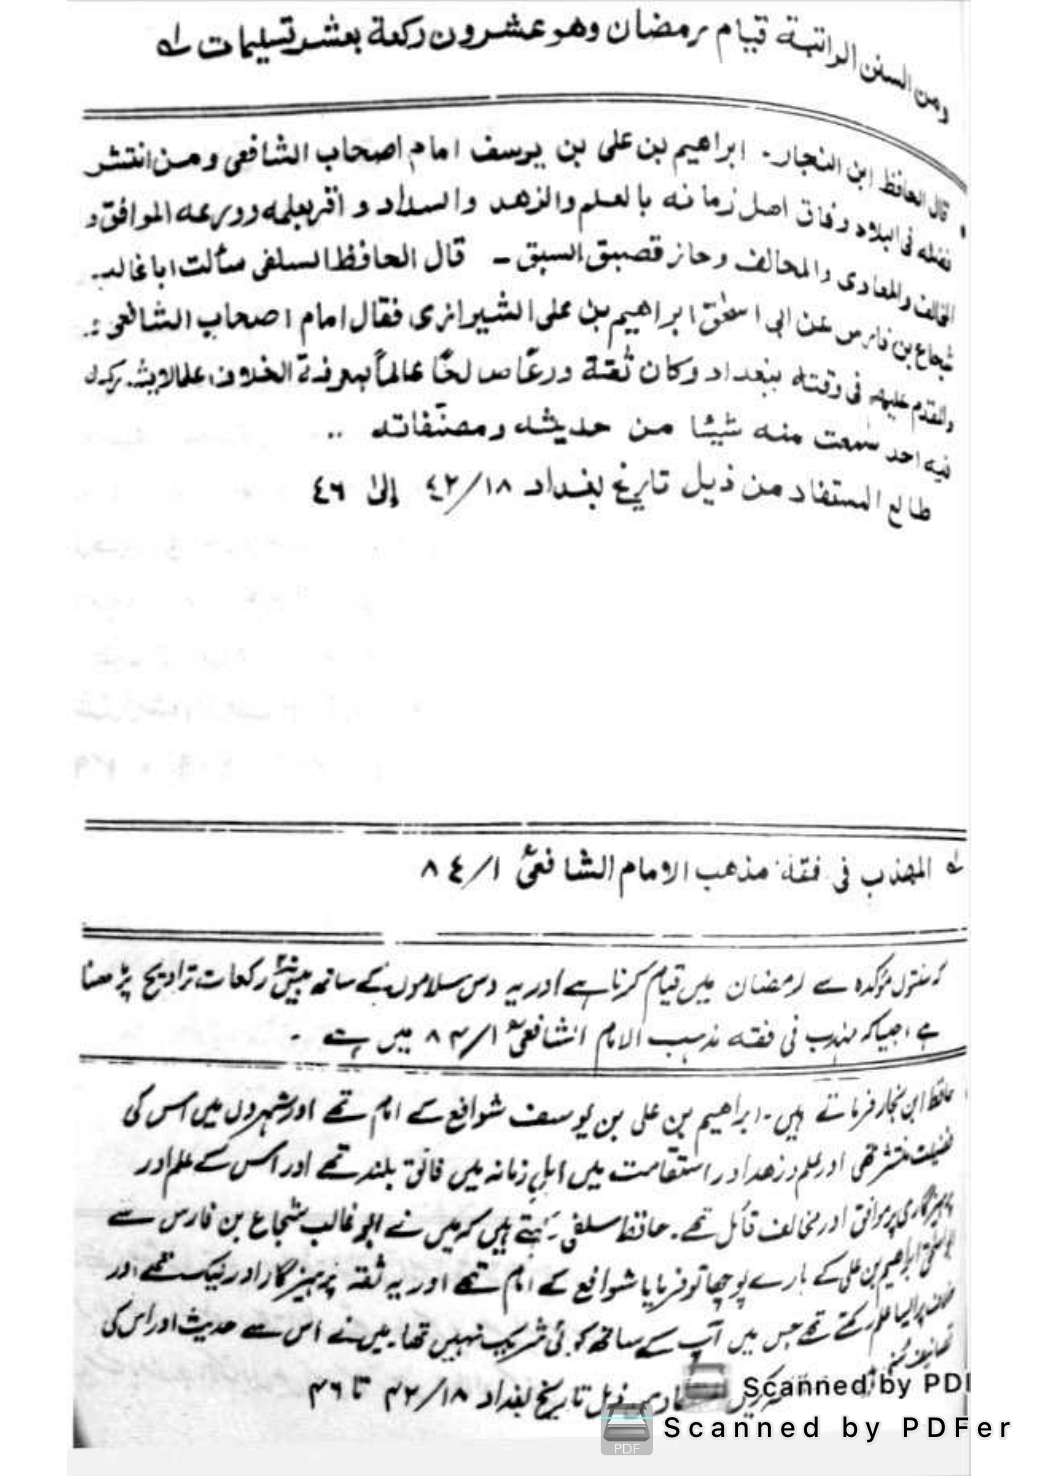 ومن السنن الراتبة قيام رمضان وهو عشرون ركعة بعشر تسليمات له
قال الحافظ ابن النجار۔ ابراهيم بن على بن يوسف امام اصحاب الشافعى ومن انتشر
فضله فى البلاد وفاق اهل زمانه بالعلم والزهد والسداد و اقر بعلمه وورعه الموافق و
المخالف والمعادى والمحالف وحاز قصبق السبق ۔ قال الحافظ السلفى سألت اباغالب
شجاع بن فارس عن ابى اسحق ابراهيم بن على الشيرازى فقال امام اصحاب الشافعى
والمقدم عليهم فى وقته ببغداد وكان ثقة ورعًا صالحًا عالماً بمعرفة الخلاف علما لا يشركه
فيه احد سمعت منه شيئا من حديثه ومصنّفاته ..
طالع المستفاد من ذيل تاريخ بغداد ١٨/٤٢ إلى ٤٦
له المهذب فى فقه مذهب الامام الشافعىؒ ١/٨٤
كہ سنتوں مؤكدہ سے رمضان میں قیام کرنا ہے اور یہ دس سلاموں کے ساتھ بیس۲۰ رکعات تراویح پڑھنا
ہے، جیسا کہ مہذب فی فقہ مذہب الامام الشافعیؒ ۸۴/۱ میں ہے ۔
حافظ ابن نجار فرماتے ہیں۔ ابراھیم بن علی بن یوسف شوافع کے امام تھے اور شہروں میں اس کی
فضیلت منتشر تھی اور علم و زھد اور استقامت میں اہل زمانہ میں فائق بلند تھے اور اس کے علم اور
پرہیزگاری پر موافق اور مخالف قائل تھے۔ حافظ سلفی کہتے ہیں کہ میں نے ابو غالب شجاع بن فارس سے
ابو اسحٰق ابراھیم بن علی کے بارے پوچھا تو فرمایا شوافع کے امام تھے اور یہ ثقہ پرہیزگار اور نیک تھے اور
پر ایسا علم رکھتے تھے جس میں آپ کے ساتھ کوئی شریک نہیں تھا۔ میں نے اس سے حدیث اور اس کی
تصانیف
کریں ذیل تاریخ بغداد ۴۲/۱۸ تا ۴۶
Scanned by PDF
Scanned by PDFer
PDF